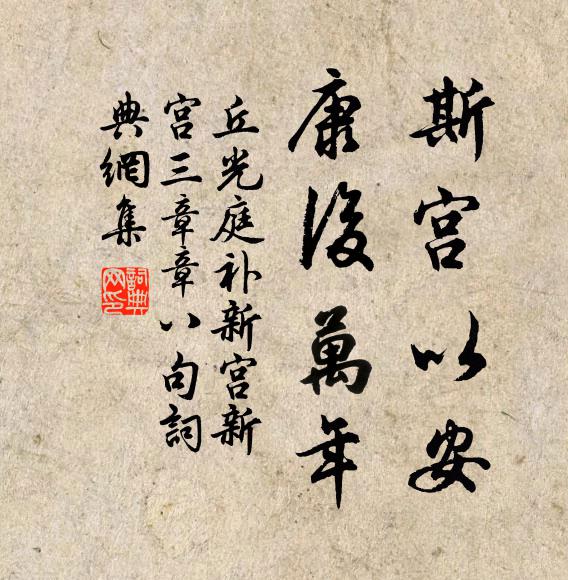 斯宫以安
康後萬年
丘光庭补新宫新
宫三章章八句詞
典網集
詞典网印